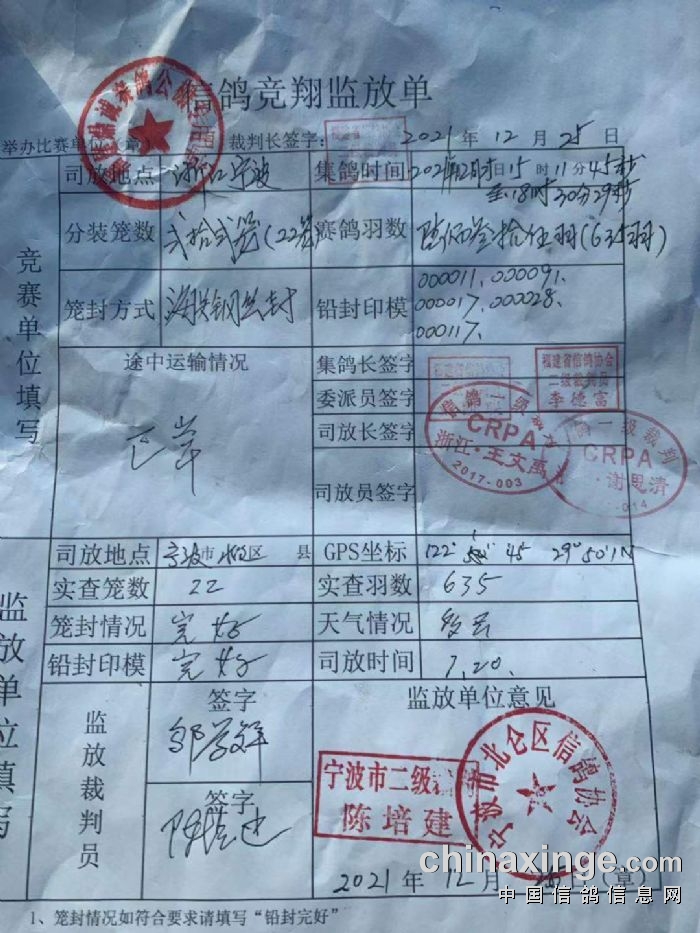 信鸽竞翔监放单
举办比赛单位(章) 裁判长签字: 2021年12月25日
竞赛单位填写
司放地点 浙江宁波 集鸽时间 日15时11分45秒
至18时30分29秒
分装笼数 贰拾贰笼(22笼) 赛鸽羽数 陆佰叁拾伍羽(635羽)
笼封方式 铅封印模 000011、000091、
000017、000028、
000117、
途中运输情况 集鸽长签字
正常 委派员签字
司放长签字
司放员签字
福建省信鸽协会
二级裁判员
李德富
信鸽一级裁判
CRPA
浙江·王文禹
2017-003
信鸽一级裁判
CRPA
谢思清
014
监放单位填写
司放地点 宁波市 区 县 GPS坐标 122° 45 29°50'1N
实查笼数 22 实查羽数 635
笼封情况 完好 天气情况 多云
铅封印模 完好 司放时间 7.20.
监放裁判员
签字 监放单位意见
签字
宁波市二级
陈培建
宁波市北仑区信鸽协会
2021年12月 (章)
chinaxinge.com
中国信鸽信息网
1、笼封情况如符合要求请填写“铅封完好”